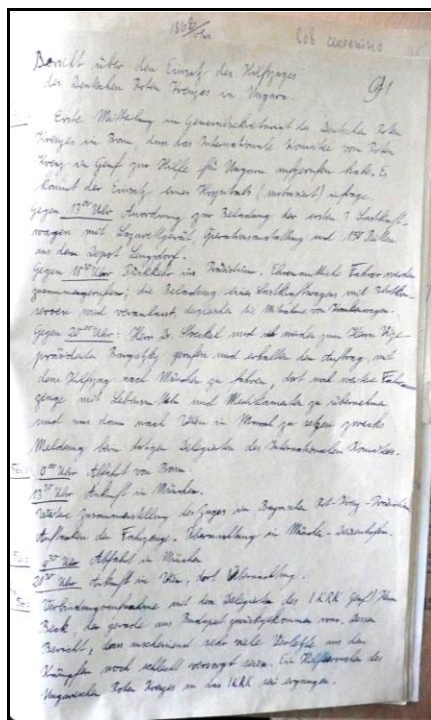 Bericht über den Einsatz des Hilfszuges
des Deutschen Roten Kreuzes in Ungarn.
Erste Mitteilung im Generalsekretariat des Deutschen Roten
Kreuzes in Bonn, dass das Internationale Komitee vom Roten
Kreuz in Genf zur Hilfe für Ungarn aufgerufen habe. Es
kommt der Einsatz eines Hospitals (motorisiert) infrage.
Gegen 13⁰⁰ Uhr Anordnung zur Beladung der ersten 7 Lastkraft-
wagen mit Lazarettgerät, Operationsausstattung und Betten
aus dem Depot Lengsdorf.
Gegen 18 Uhr Rückkehr ins Präsidium. Ehrenamtliche Fahrer werden
zusammengerufen; die Beladung eines Lastkraftwagens mit Blutkon-
serven wird veranlasst, desgleichen die Mitnahme von Krankenwagen.
Gegen 20⁰⁰ Uhr: Herr Dr. Stoeckel und ich werden zum Herrn Vize-
präsidenten Bargatzky gerufen und erhalten den Auftrag, mit
dem Hilfszug nach München zu fahren, dort noch weitere Fahr-
zeuge mit Lebensmitteln und Medikamenten zu übernehmen
und uns dann nach Wien in Marsch zu setzen zwecks
Meldung beim dortigen Delegierten des Internationalen Komitees.
0⁰⁰ Uhr Abfahrt von Bonn.
13 Uhr Ankunft in München.
Weitere Zusammenstellung des Zuges im Bayrischen Rot-Kreuz-Präsidium.
Auftanken der Fahrzeuge. Übernachtung in München-Deisenhofen.
Uhr Abfahrt in München
20 Uhr Ankunft in Wien, dort Übernachtung.
Verbindungsaufnahme mit dem Delegierten des IKRK Genf, Herrn
Beck, der gerade aus Budapest zurückgekommen war. Dessen
Bericht, dass anscheinend sehr viele Verletzte aus den
Kämpfen noch schlecht versorgt seien. Ein Hilfeersuchen des
Ungarischen Roten Kreuzes an das IKRK sei ergangen.